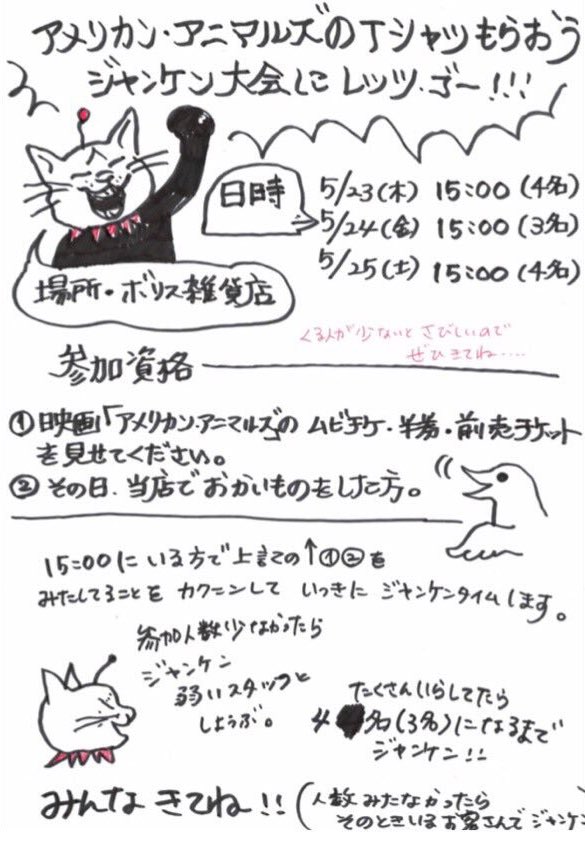 アメリカン・アニマルズのTシャツもらおう
ジャンケン大会にレッツ・ゴー!!!
日時
5/23(木) 15:00(4名)
5/24(金) 15:00(3名)
5/25(土) 15:00(4名)
場所・ボリス雑貨店
くる人が少ないとさびしいので
ぜひきてね....
参加資格
①映画「アメリカン・アニマルズ」のムビチケ・半券・前売チケット
を見せてください。
②その日、当店でおかいものをした方。
15:00にいる方で上記の↑①②を
みたしてることをカクニンしていっきにジャンケンタイムします。
参加人数少なかったら
ジャンケン
弱いスタッフと
しょうぶ。
たくさんいらしてたら
4名(3名)になるまで
ジャンケン!!
みんなきてね!!
(人数みたなかったら
そのときいるお客さんでジャンケン